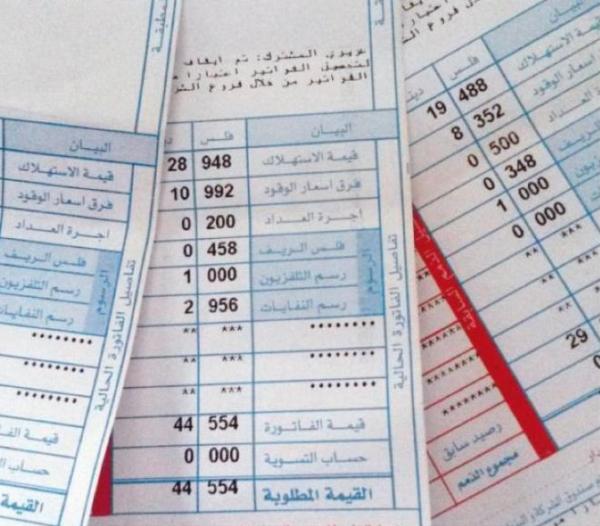 المطبقة
عزيزي المشترك: تم ايقاف
لتحصيل الفواتير اعتبارا
الفواتير من خلال فروع
البيان فلس
قيمة الاستهلاك 948 28
فرق اسعار الوقود 992 10
اجرة العداد 200 0
الرسوم
فلس الريف 458 0
رسم التلفزيون 000 1
رسم النفايات 956 2
******** *** **
******** *** **
******** *** **
قيمة الفاتورة 554 44
حساب التسوية 000 0
القيمة المطلوبة 554 44
تفاصيل الفاتورة الحالية
البيان
قيمة الاستهلاك
فرق اسعار الوقود
اجرة العداد
الرسوم
فلس الريف
رسم التلفزيون
رسم النفايات
********
********
********
قيمة الف
حساب
القيمة
تفاصيل الفاتورة الحالية
البيان
فلس
قيمة الاستهلاك 488 19
اسعار الوقود 352 8
العداد 500 0
الريف 348 0
000 1
000 0
***
29
رصيد سابق
مجموع الذمم